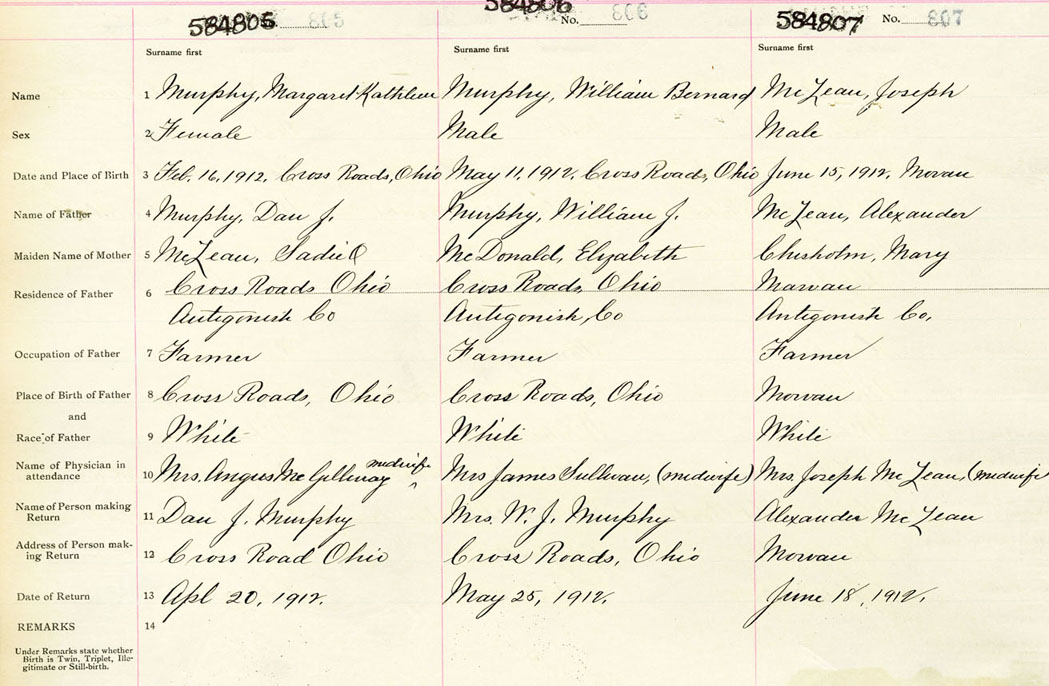 584805 805 584806 No. 806 584807 No. 807
Surname first Surname first Surname first
Name 1 Murphy, Margaret Kathleen Murphy, William Bernard McLean, Joseph
Sex 2 Female Male Male
Date and Place of Birth 3 Feb. 16, 1912. Cross Roads, Ohio May 11, 1912. Cross Roads, Ohio June 15, 1912. Morvan
Name of Father 4 Murphy, Dan J. Murphy, William J. McLean, Alexander
Maiden Name of Mother 5 McLean, Sadie McDonald, Elizabeth Chisholm, Mary
Residence of Father 6 Cross Roads Ohio Cross Roads, Ohio Marvan
Antigonish Co Antigonish, Co Antigonish Co,
Occupation of Father 7 Farmer Farmer Farmer
Place of Birth of Father 8 Cross Roads, Ohio Cross Roads, Ohio Morvan
and
Race of Father 9 White White White
Name of Physician in
attendance 10 Mrs. Angus McGillivray midwife Mrs James Sullivan, (midwife) Mrs. Joseph McLean, (midwife
Name of Person making
Return 11 Dan J. Murphy Mrs. W. J. Murphy Alexander McLean
Address of Person mak-
ing Return 12 Cross Road Ohio Cross Roads, Ohio Morvan
Date of Return 13 Apl 20, 1912. May 25, 1912. June 18, 1912.
REMARKS 14
Under Remarks state whether
Birth is Twin, Triplet, Ille-
gitimate or Still-birth.